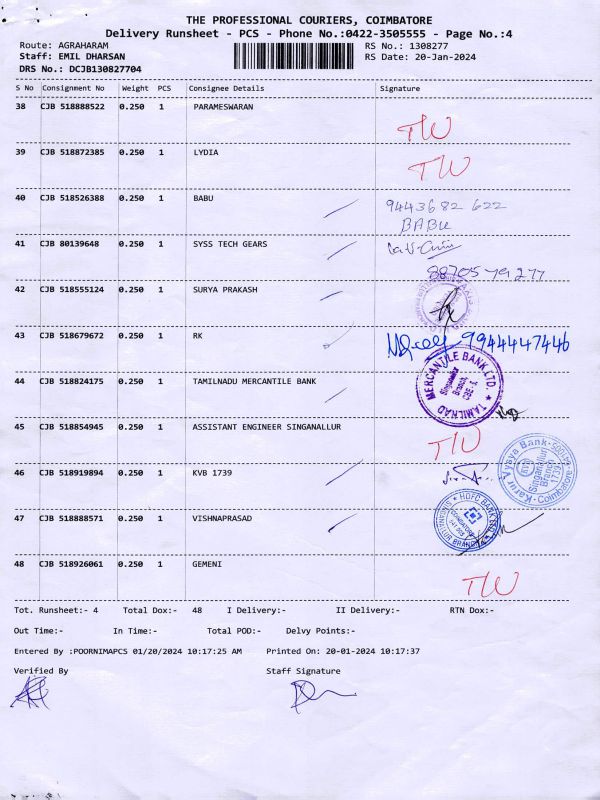 THE PROFESSIONAL COURIERS, COIMBATORE
Delivery Runsheet - PCS - Phone No.:0422-3505555 - Page No.:4
Route: AGRAHARAM RS No.: 1308277
Staff: EMIL DHARSAN RS Date: 20-Jan-2024
DRS No.: DCJB130827704
S No Consignment No Weight PCS Consignee Details Signature
38 CJB 518888522 0.250 1 PARAMESWARAN
39 CJB 518872385 0.250 1 LYDIA
40 CJB 518526388 0.250 1 BABU 9443682 622
BABU
41 CJB 80139648 0.250 1 SYSS TECH GEARS
8870579277
42 CJB 518555124 0.250 1 SURYA PRAKASH
43 CJB 518679672 0.250 1 RK 9944447446
44 CJB 518824175 0.250 1 TAMILNADU MERCANTILE BANK
TAMILNAD MERCANTILE BANK LTD.
Singanallur
Branch
CBE - 5.
45 CJB 518854945 0.250 1 ASSISTANT ENGINEER SINGANALLUR
46 CJB 518919894 0.250 1 KVB 1739
Karur Vysya Bank
KVB
Singanallur
Branch
1739
Coimbatore
47 CJB 518888571 0.250 1 VISHNAPRASAD
HDFC BANK LTD
COIMBATORE
SINGANALLUR BRANCH
48 CJB 518926061 0.250 1 GEMENI
Tot. Runsheet:- 4 Total Dox:- 48 I Delivery:- II Delivery:- RTN Dox:-
Out Time:- In Time:- Total POD:- Delvy Points:-
Entered By :POORNIMAPCS 01/20/2024 10:17:25 AM Printed On: 20-01-2024 10:17:37
Verified By Staff Signature